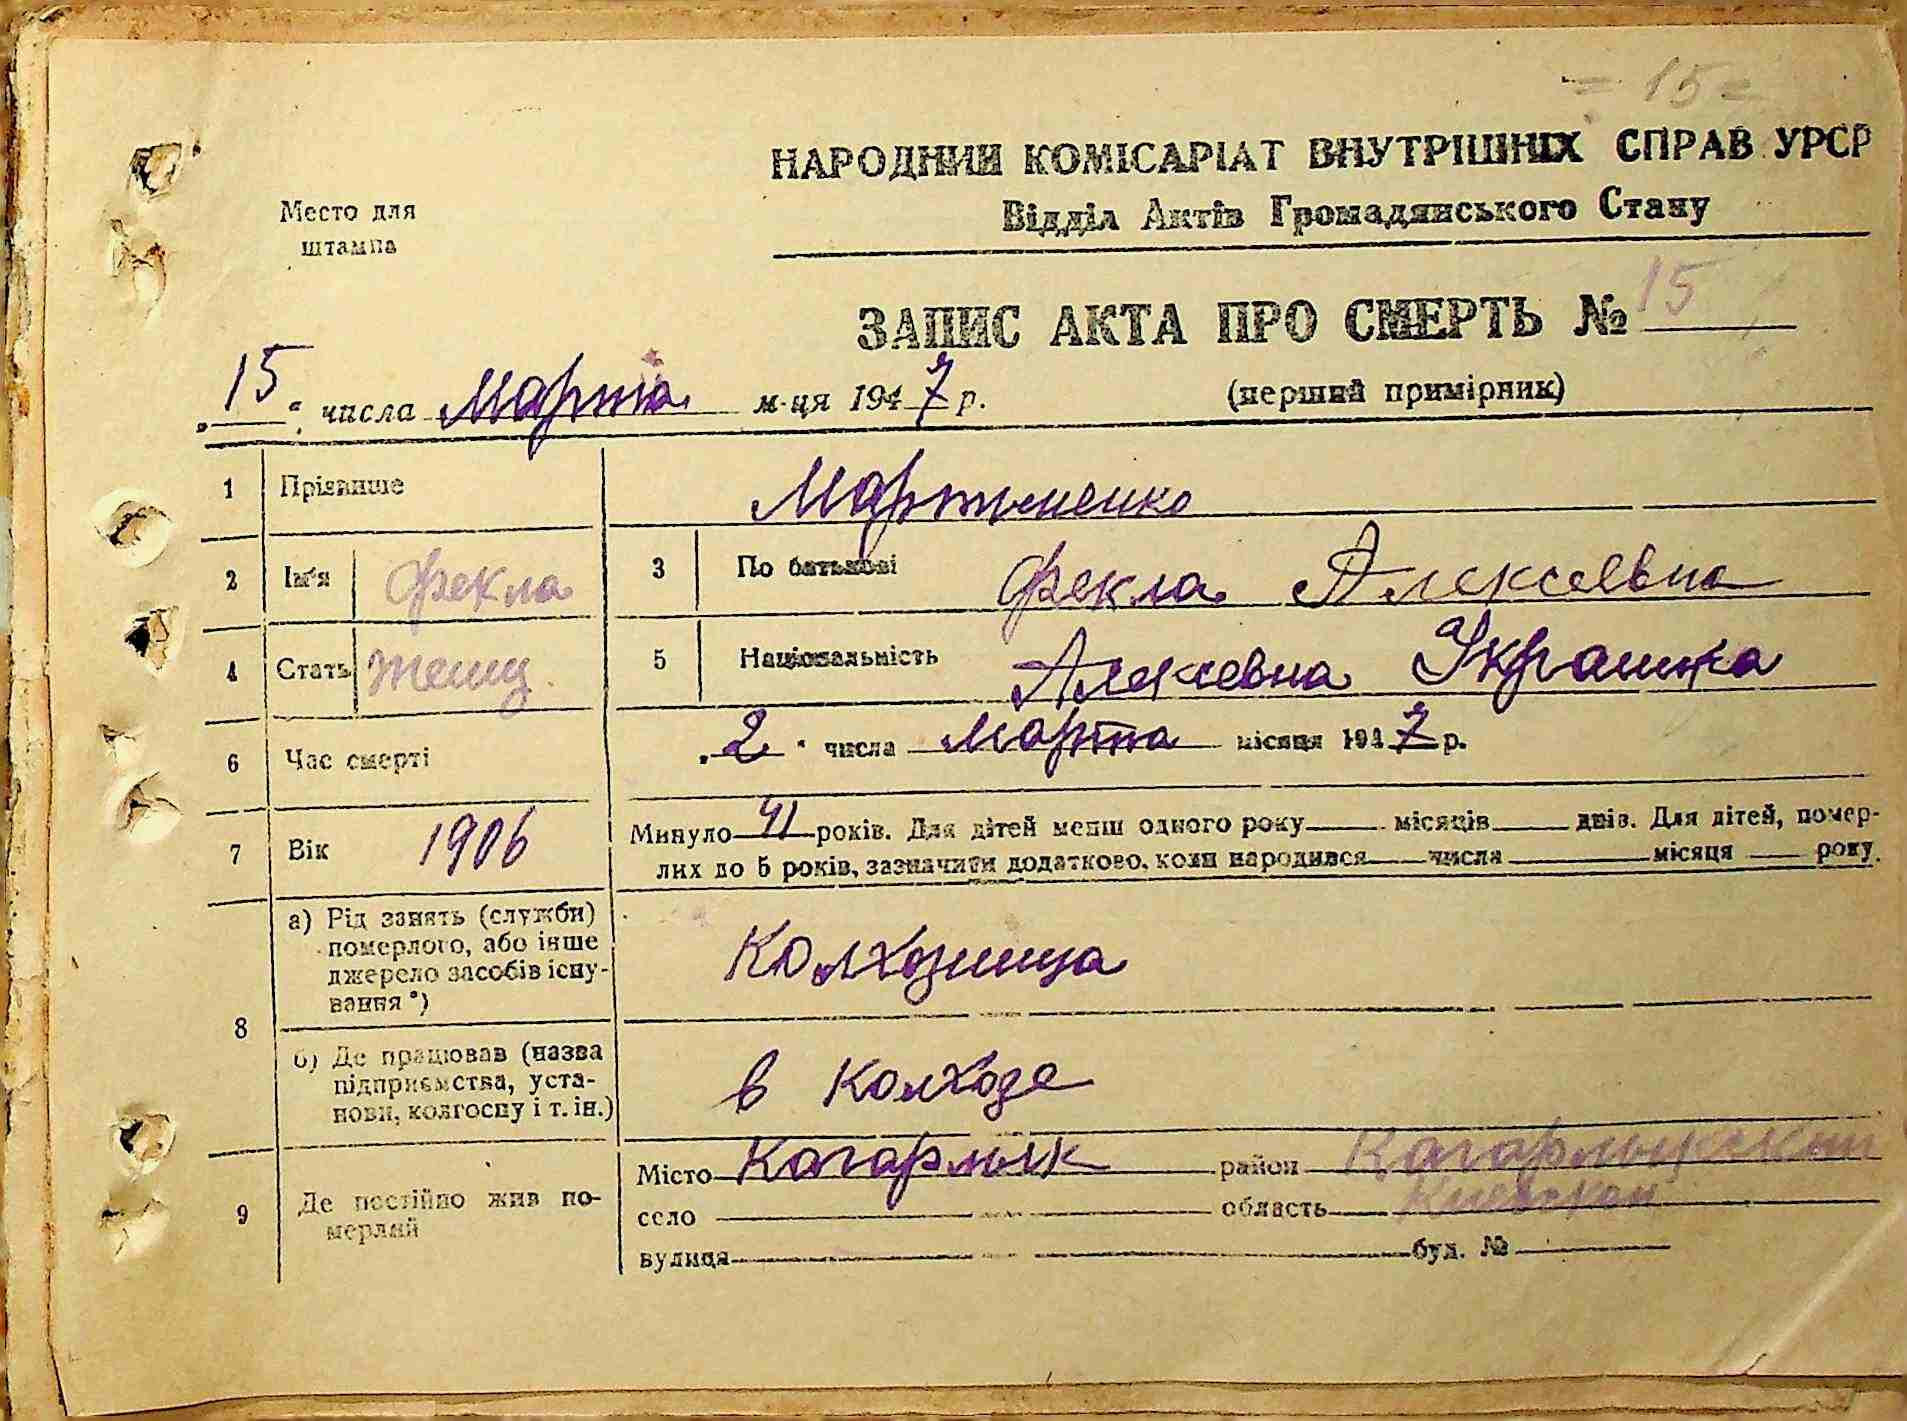 = 15 =
НАРОДНИЙ КОМІСАРІАТ ВНУТРІШНІХ СПРАВ УРСР
Место для
штампа
Відділ Актів Громадянського Стану
ЗАПИС АКТА ПРО СМЕРТЬ № 15
„15“ числа Марта м-ця 1947 р. (перший примірник)
1 Прізвище Мартыненко
2 Ім'я Фекла 3 По батькові Фекла Алексеевна
4 Стать женщ. 5 Національність Алексевна Украинка
6 Час смерті „2“ числа Марта місяця 1947 р.
7 Вік 1906 Минуло 41 років. Для дітей менш одного року місяців днів. Для дітей, помер-
лих до 5 років, зазначити додатково, коли народився числа місяця року.
8 а) Рід занять (служби)
померлого, або інше
джерело засобів існу-
вання*)
Колхозница
б) Де працював (назва
підприємства, уста-
нови, колгоспу і т. ін.)
в Колхозе
9 Де постійно жив по-
мерлий
Місто Кагарлык район Кагарлыкский
село область Киевской
вулиця буд. №